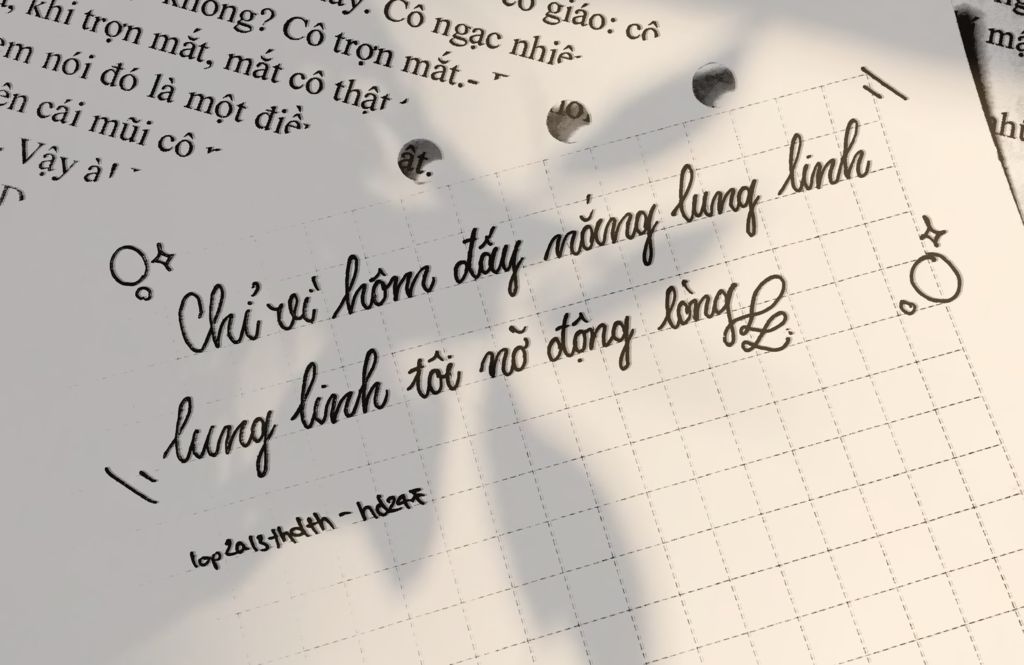 giáo: cô
không? Cô trợn mắt.-
Cô ngạc nhiê
khi trợn mắt, mắt cô thật
em nói đó là một điề
ên cái mũi cô
Vậy à!
ật.
Chỉ vì hôm đấy nắng lung linh
lung linh tôi nỡ động lòng
lop2a13thdth - hd24